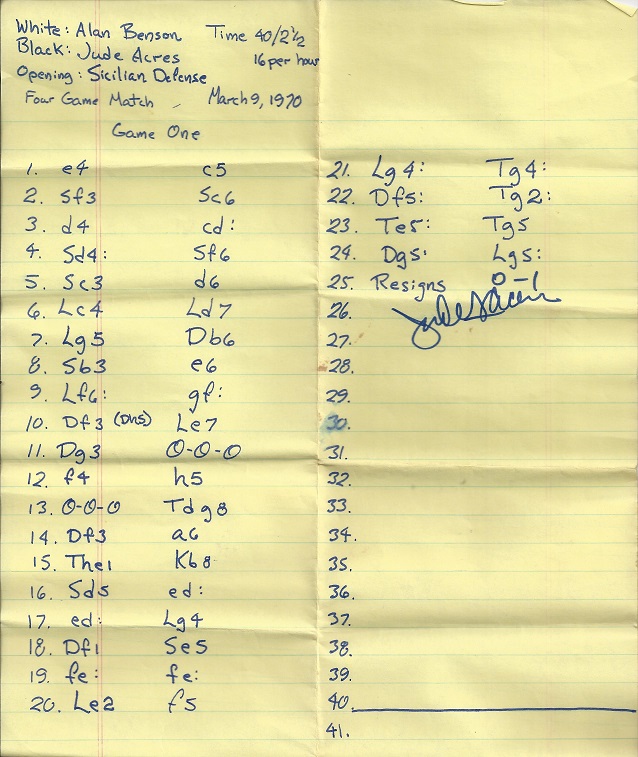 White: Alan Benson Time 40/2½
Black: Jude Acres 16 per hour
Opening: Sicilian Defense
Four Game Match March 9, 1970
Game One
1. e4 c5
2. Sf3 Sc6
3. d4 cd:
4. Sd4: Sf6
5. Sc3 d6
6. Lc4 Ld7
7. Lg5 Db6
8. Sb3 e6
9. Lf6: gf:
10. Df3 (Dh5) Le7
11. Dg3 O-O-O
12. f4 h5
13. O-O-O Tdg8
14. Df3 a6
15. The1 Kb8
16. Sd5 ed:
17. ed: Lg4
18. Df1 Se5
19. fe: fe:
20. Le2 f5
21. Lg4: Tg4:
22. Df5: Tg2:
23. Te5: Tg5
24. Dg5: Lg5:
25. Resigns 0-1
26. Jude Acers
27.
28.
29.
30.
31.
32.
33.
34.
35.
36.
37.
38.
39.
40.
41.